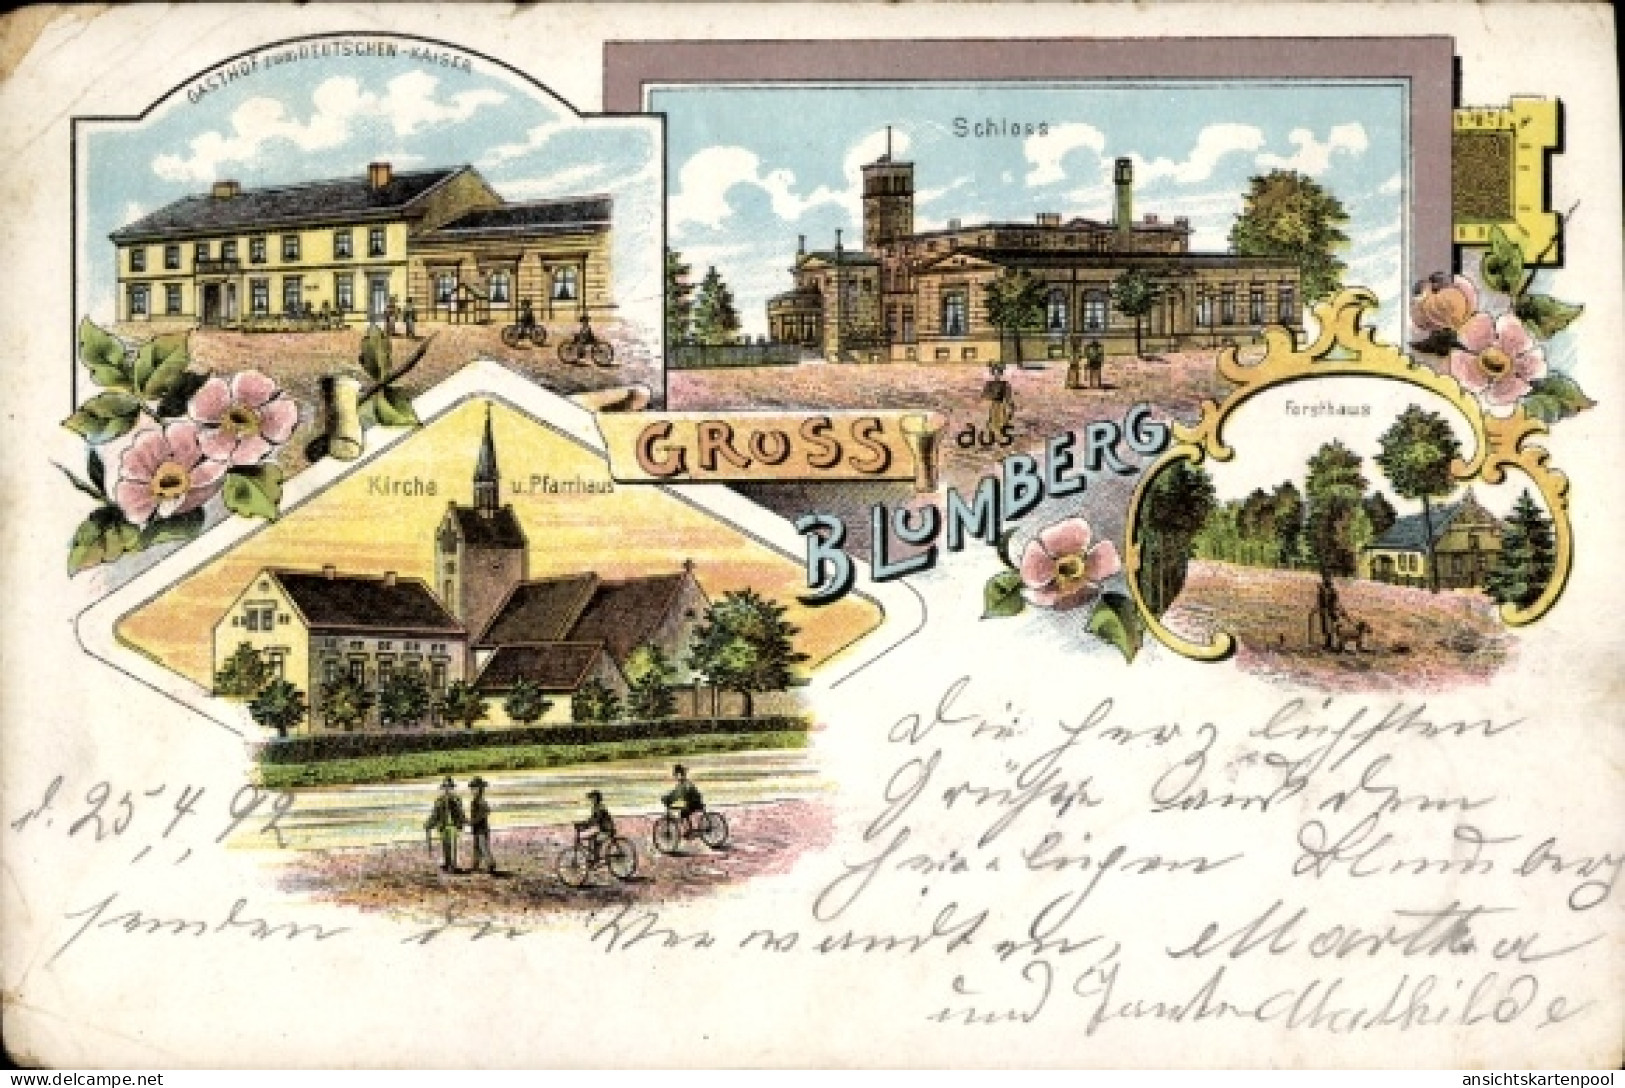 GASTHOF zum DEUTSCHEN-KAISER
Schloss
Forsthaus
GRUSS aus
BLUMBERG
Kirche u. Pfarrhaus
Die herzlichsten
d. 25.4.92
Grüße aus dem
Blumberg
senden die Verwandten, Martha
und Tante Mathilde
ansichtskartenpool